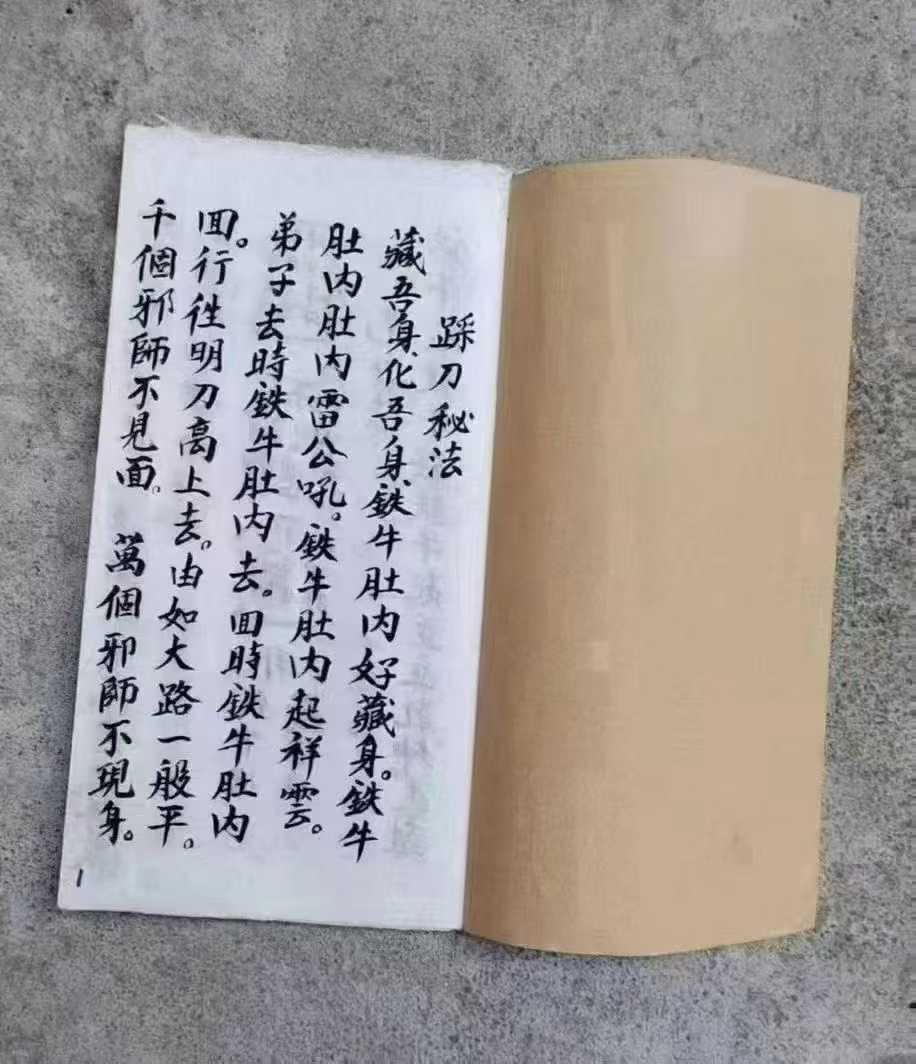 踩刀秘法
藏吾身、化吾身、鉄牛肚内好藏身。鉄牛
肚内肚内雷公吼。鉄牛肚内起祥雲。
弟子去時鉄牛肚内去。囬時鉄牛肚内
囬。行徃明刀高上去。由如大路一般平。
千個邪師不見面。萬個邪師不現身。
1